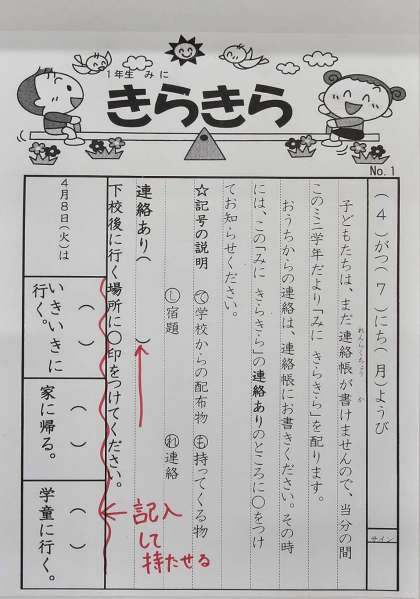 1年生 みに
きらきら
No.1
(4)がつ(7)にち(月)ようび
サイン
子どもたちは、まだ連絡帳が書けませんので、当分の間
れんらくちょう か
このミニ学年だより「みに きらきら」を配ります。
おうちからの連絡は、連絡帳にお書きください。その時
には、この「みに きらきら」の連絡ありのところに○をつけ
てお知らせください。
☆記号の説明 ㋢学校からの配布物 ㋲持ってくる物
㋛宿題 ㋹連絡
連絡あり( )
下校後に行く場所に○印をつけてください。
記入
して
持たせる
4月8日(火)は
( )いきいきに
行く。
( )家に帰る。
( )学童に行く。